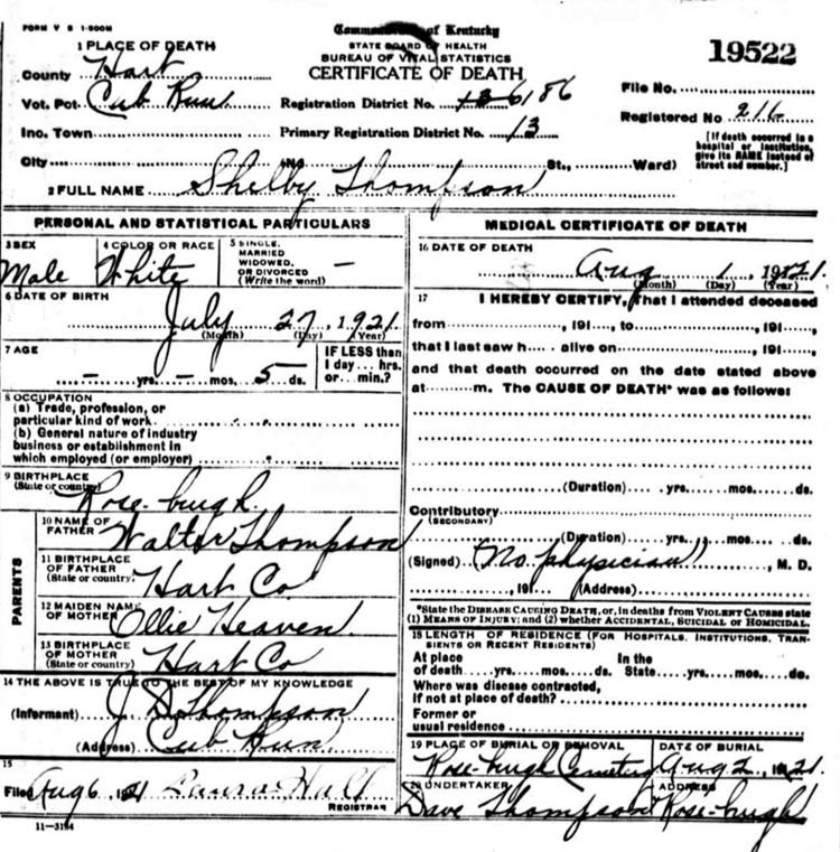 FORM V S 1-500M
Commonwealth of Kentucky
STATE BOARD OF HEALTH
BUREAU OF VITAL STATISTICS
CERTIFICATE OF DEATH
19522
1 PLACE OF DEATH
County Hart
Vot. Pct. Cub Run
Inc. Town
City
Registration District No. 6186
Primary Registration District No. 13
File No.
Registered No 216
[If death occurred in a
hospital or institution,
give its NAME instead of
street and number.]
(No St., Ward)
2 FULL NAME Shelby Thompson
PERSONAL AND STATISTICAL PARTICULARS
3 SEX
Male
4 COLOR OR RACE
White
5 SINGLE,
MARRIED
WIDOWED,
OR DIVORCED
(Write the word)
—
6 DATE OF BIRTH
July 27, 1921
(Month) (Day) (Year)
7 AGE
— yrs. — mos. 5 ds.
IF LESS than
1 day... hrs.
or... min.?
8 OCCUPATION
(a) Trade, profession, or
particular kind of work
(b) General nature of industry
business or establishment in
which employed (or employer)
9 BIRTHPLACE
(State or country)
Rose-burgh
PARENTS
10 NAME OF
FATHER
Walter Thompson
11 BIRTHPLACE
OF FATHER
(State or country)
Hart Co
12 MAIDEN NAME
OF MOTHER
Ollie Heaven
13 BIRTHPLACE
OF MOTHER
(State or country)
Hart Co
14 THE ABOVE IS TRUE TO THE BEST OF MY KNOWLEDGE
(Informant) J D Thompson
(Address) Cub Run
15
Filed Aug 6, 1921 Laura Hall
REGISTRAR
11-3184
MEDICAL CERTIFICATE OF DEATH
16 DATE OF DEATH
Aug 1, 1921.
(Month) (Day) (Year)
17 I HEREBY CERTIFY, That I attended deceased
from , 191..., to , 191...,
that I last saw h.... alive on , 191...,
and that death occurred on the date stated above
at m. The CAUSE OF DEATH* was as follows:
(Duration) yrs. mos. ds.
Contributory
(SECONDARY)
(Duration) yrs. mos. ds.
(Signed) (No physician), M. D.
, 191 (Address)
*State the DISEASE CAUSING DEATH, or, in deaths from VIOLENT CAUSES state
(1) MEANS OF INJURY; and (2) whether ACCIDENTAL, SUICIDAL or HOMICIDAL.
18 LENGTH OF RESIDENCE (FOR HOSPITALS, INSTITUTIONS, TRAN-
SIENTS OR RECENT RESIDENTS)
At place In the
of death yrs. mos. ds. State yrs. mos. ds.
Where was disease contracted,
if not at place of death?
Former or
usual residence
19 PLACE OF BURIAL OR REMOVAL
Rose-burgh Cemetery
DATE OF BURIAL
Aug 2, 1921.
20 UNDERTAKER
Dave Thompson
ADDRESS
Rose-burgh